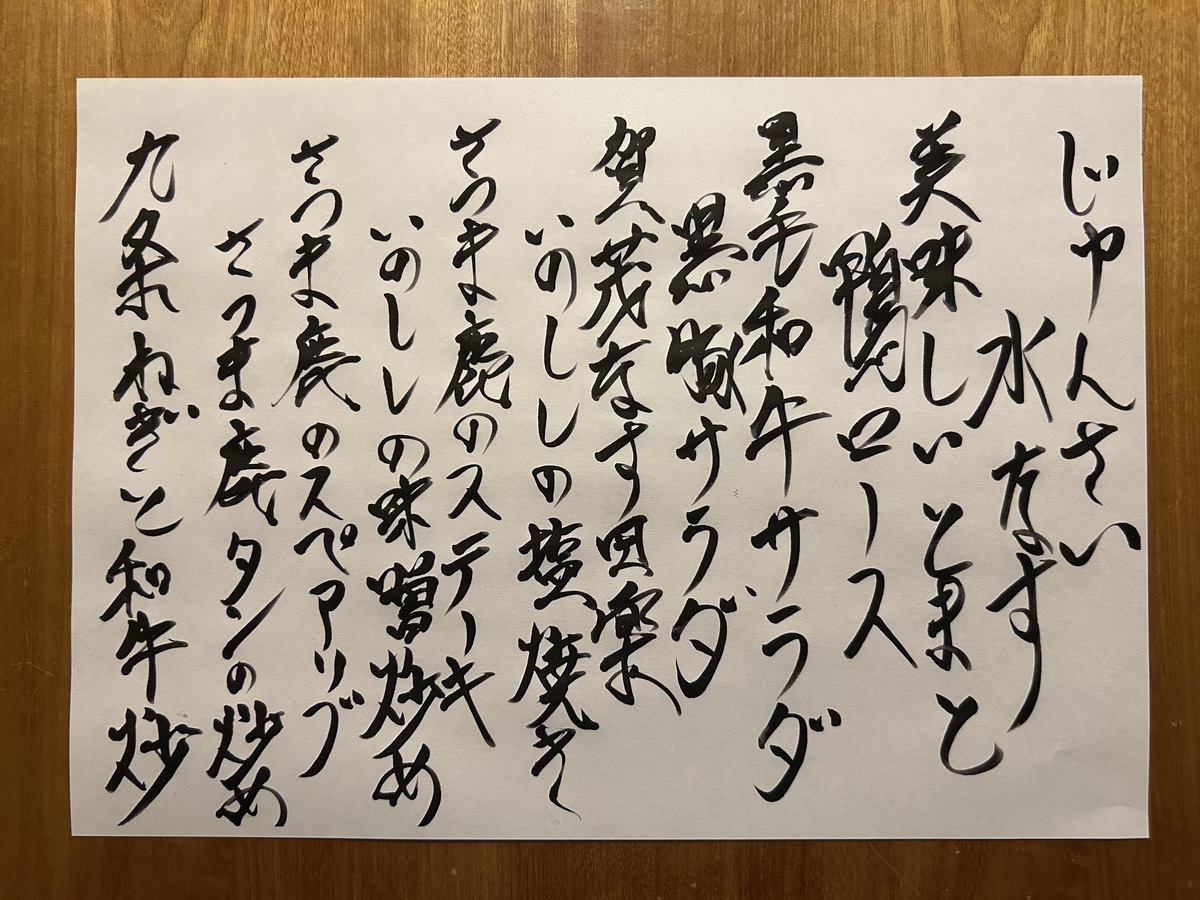 じゅんさい
水なす
美味しいとまと
鴨ロース
黒毛和牛サラダ
黒豚サラダ
賀茂なす田楽
いのししの塩焼き
さつま鹿のステーキ
いのししの味噌炒め
さつま鹿のスペアリブ
さつま鹿タンの炒め
九条ねぎと和牛炒